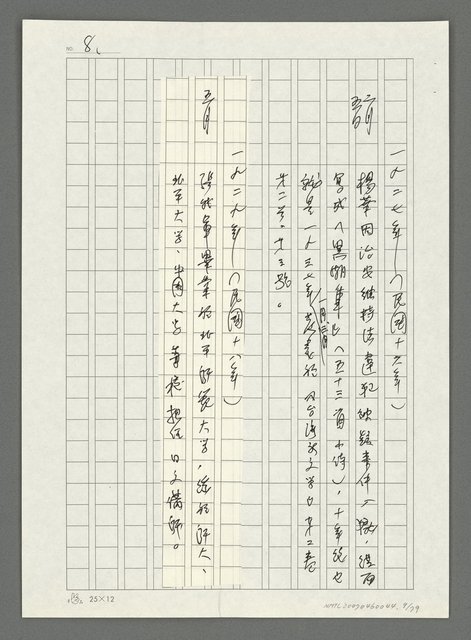 NO. 8
一九二七年(民國十六年)
二月五日
楊華因治安維持法違犯被疑事件入獄,獄中
寫成《黑潮集》(五十三首小詩),十年後也
就是一九三七年一月、三月發表於《台灣新文學》第二卷
第二号、第三號。
一九二九年(民國十八年)
五月
張我軍畢業於北平師範大學,後於師大、
北平大學、中國大學等校担任日文講師。
25×12
NMTL20070460044 9/79